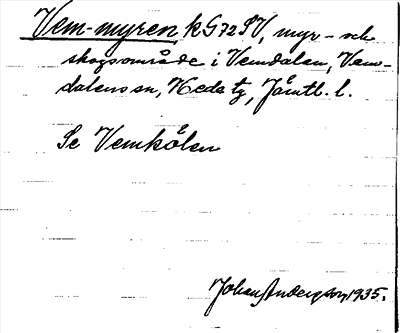 Vem-myren k G72SV, myr- och
skogsområde i Vemdalen, Vem-
dalens sn, Hede tg, Jämtl. l.
Se Vemkålen
Johan Anderson, 1935.